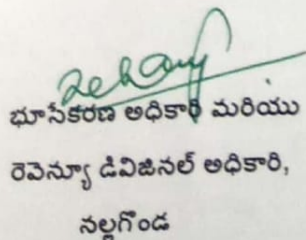 భూసేకరణ అధికారి మరియు
రెవెన్యూ డివిజినల్ అధికారి,
నల్లగొండ